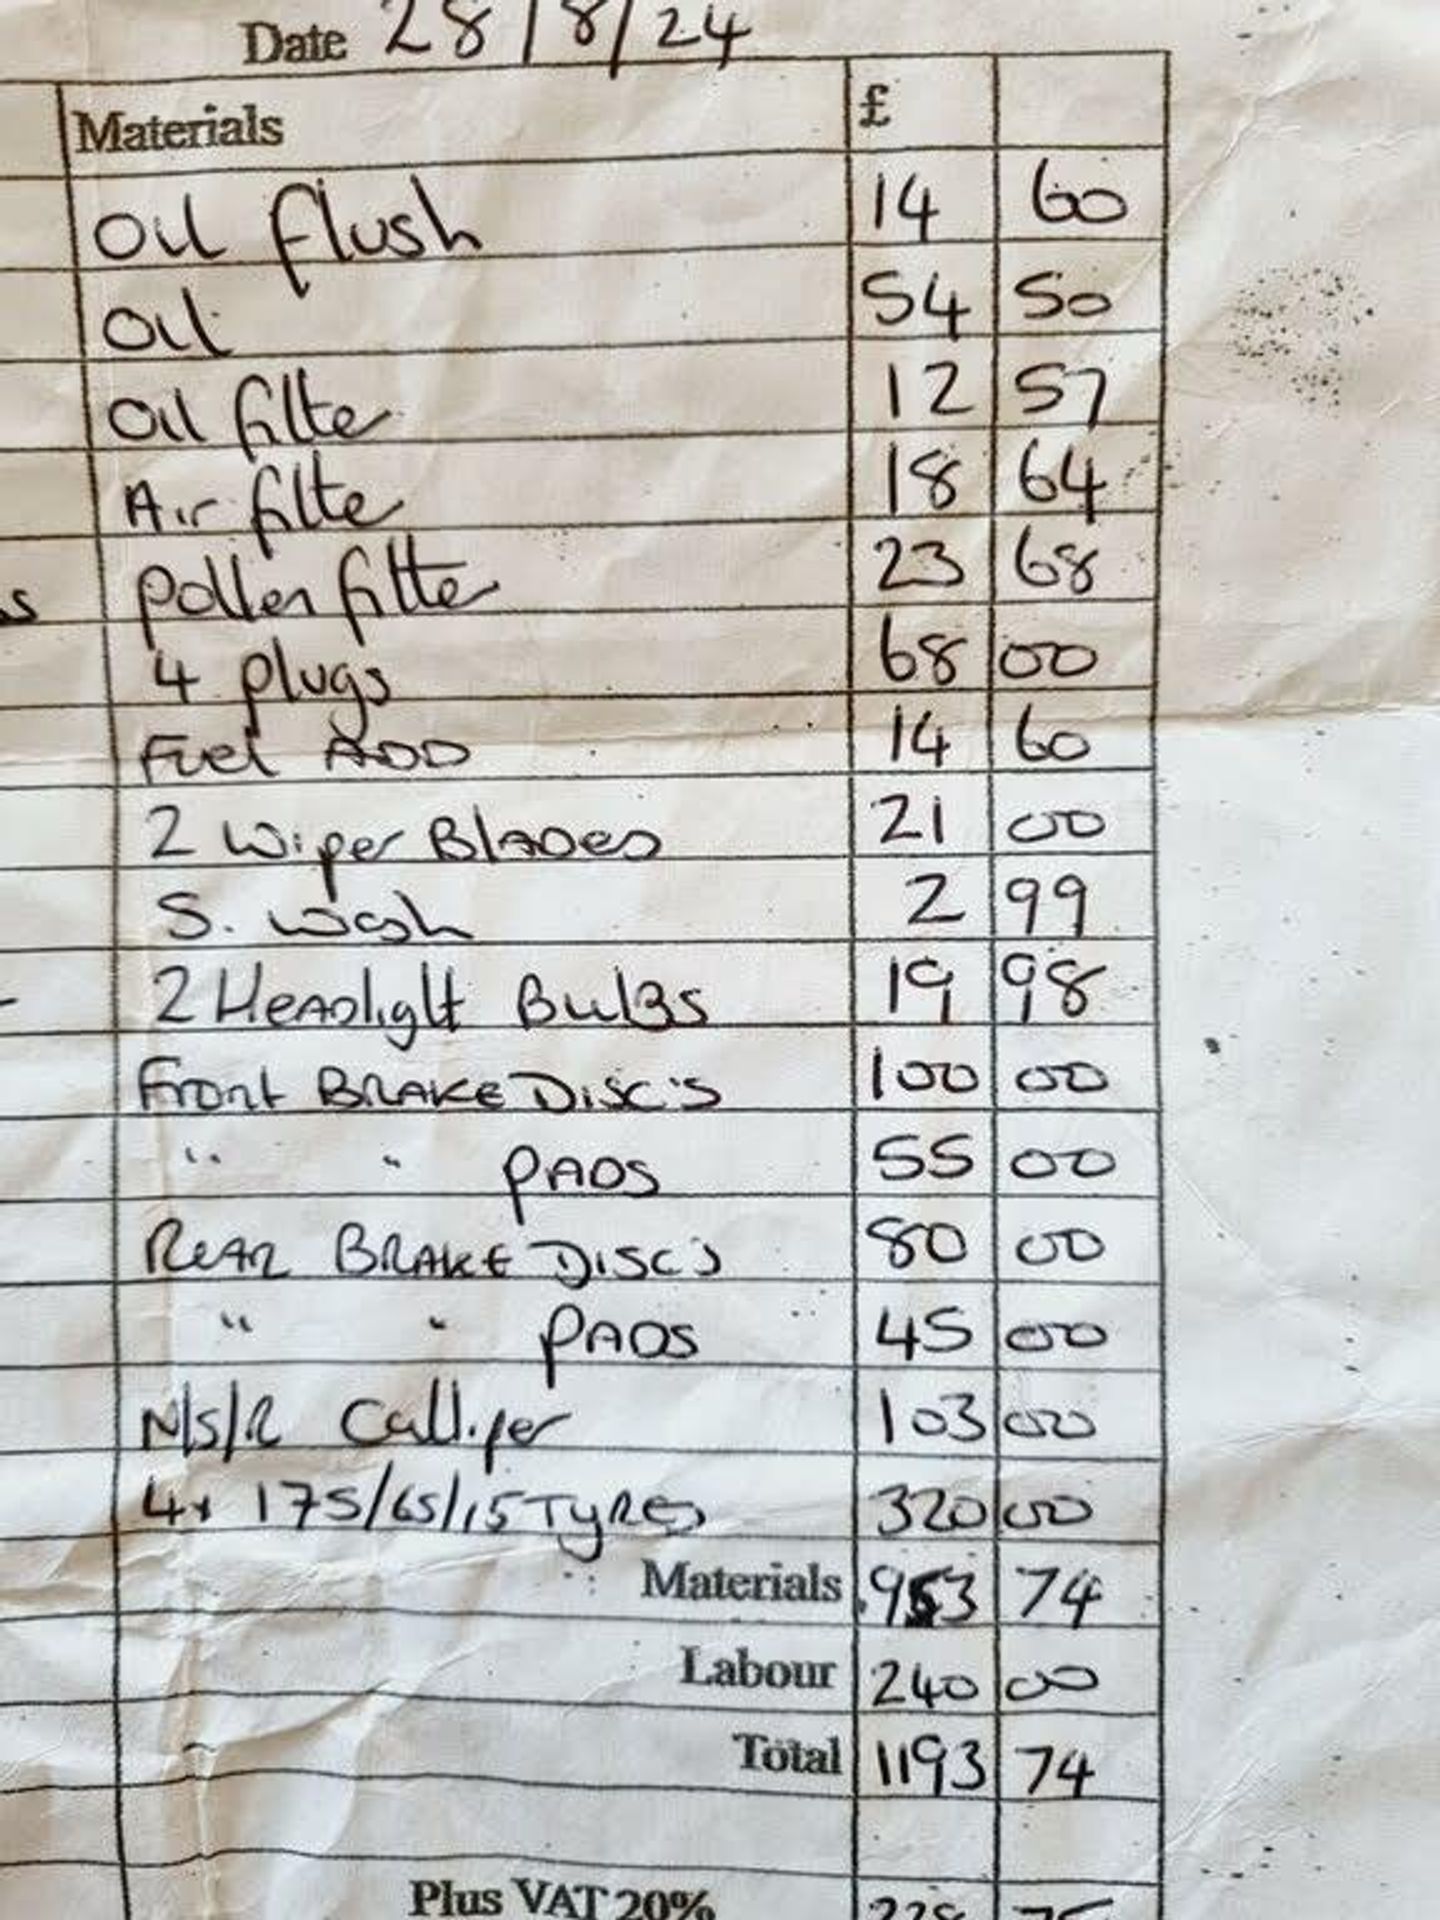 Date 28/8/24
Materials £
Oil flush 14 60
Oil 54 50
Oil filter 12 57
Air filter 18 64
s Pollen filter 23 68
4 plugs 68 00
Fuel ADD 14 60
2 Wiper BlADes 21 00
S. wash 2 99
2 HeADlight BulBs 19 98
Front BRAKE DiSC'S 100 00
" " PADS 55 00
ReAR BRAKE DiSC'S 80 00
" " PADS 45 00
N/S/R Calliper 103 00
4x 175/65/15 TyRes 320 00
Materials 953 74
Labour 240 00
Total 1193 74
Plus VAT 20%